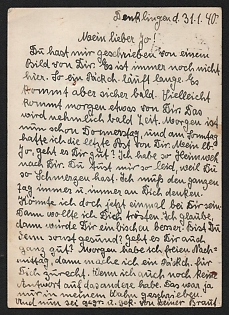 Denklingen d. 31.1.40.
Mein lieber Jo!
Du hast mir geschrieben von einem
Bild von Dir. Es ist immer noch nicht
hier. So ein Päckch. läuft lange. Es
kommt aber sicher bald. Vielleicht
kommt morgen etwas von Dir. Das
wird nehmlich bald Zeit. Morgen ist
nun schon Donnerstag, und am Sonntag
hatte ich die letzte Post von Dir. Mein lb.
Jo, geht es Dir gut? Ich habe so Heimweh
nach Dir. Du tust mir so leid, weil Du
so Schmerzen hast. Ich muß den ganzen
Tag immer u. immer an Dich denken.
Könnte ich doch jetzt einmal bei Dir sein.
Dann wollte ich Dich trösten. Ich glaube,
dann würde Dir ein bischen besser. Bist Du
denn sonst gesund? Geht es Dir auch
ganz gut? Morgen habe ich freien Nach-
mittag, dann mache ich ein Päckch. für
Dich zurecht. Wenn ich auch noch keine
Antwort auf das andere habe. Das war ja
nur in meinem Wahn geschrieben.
Und nun sei gegr. u. gek. von Deiner Braut